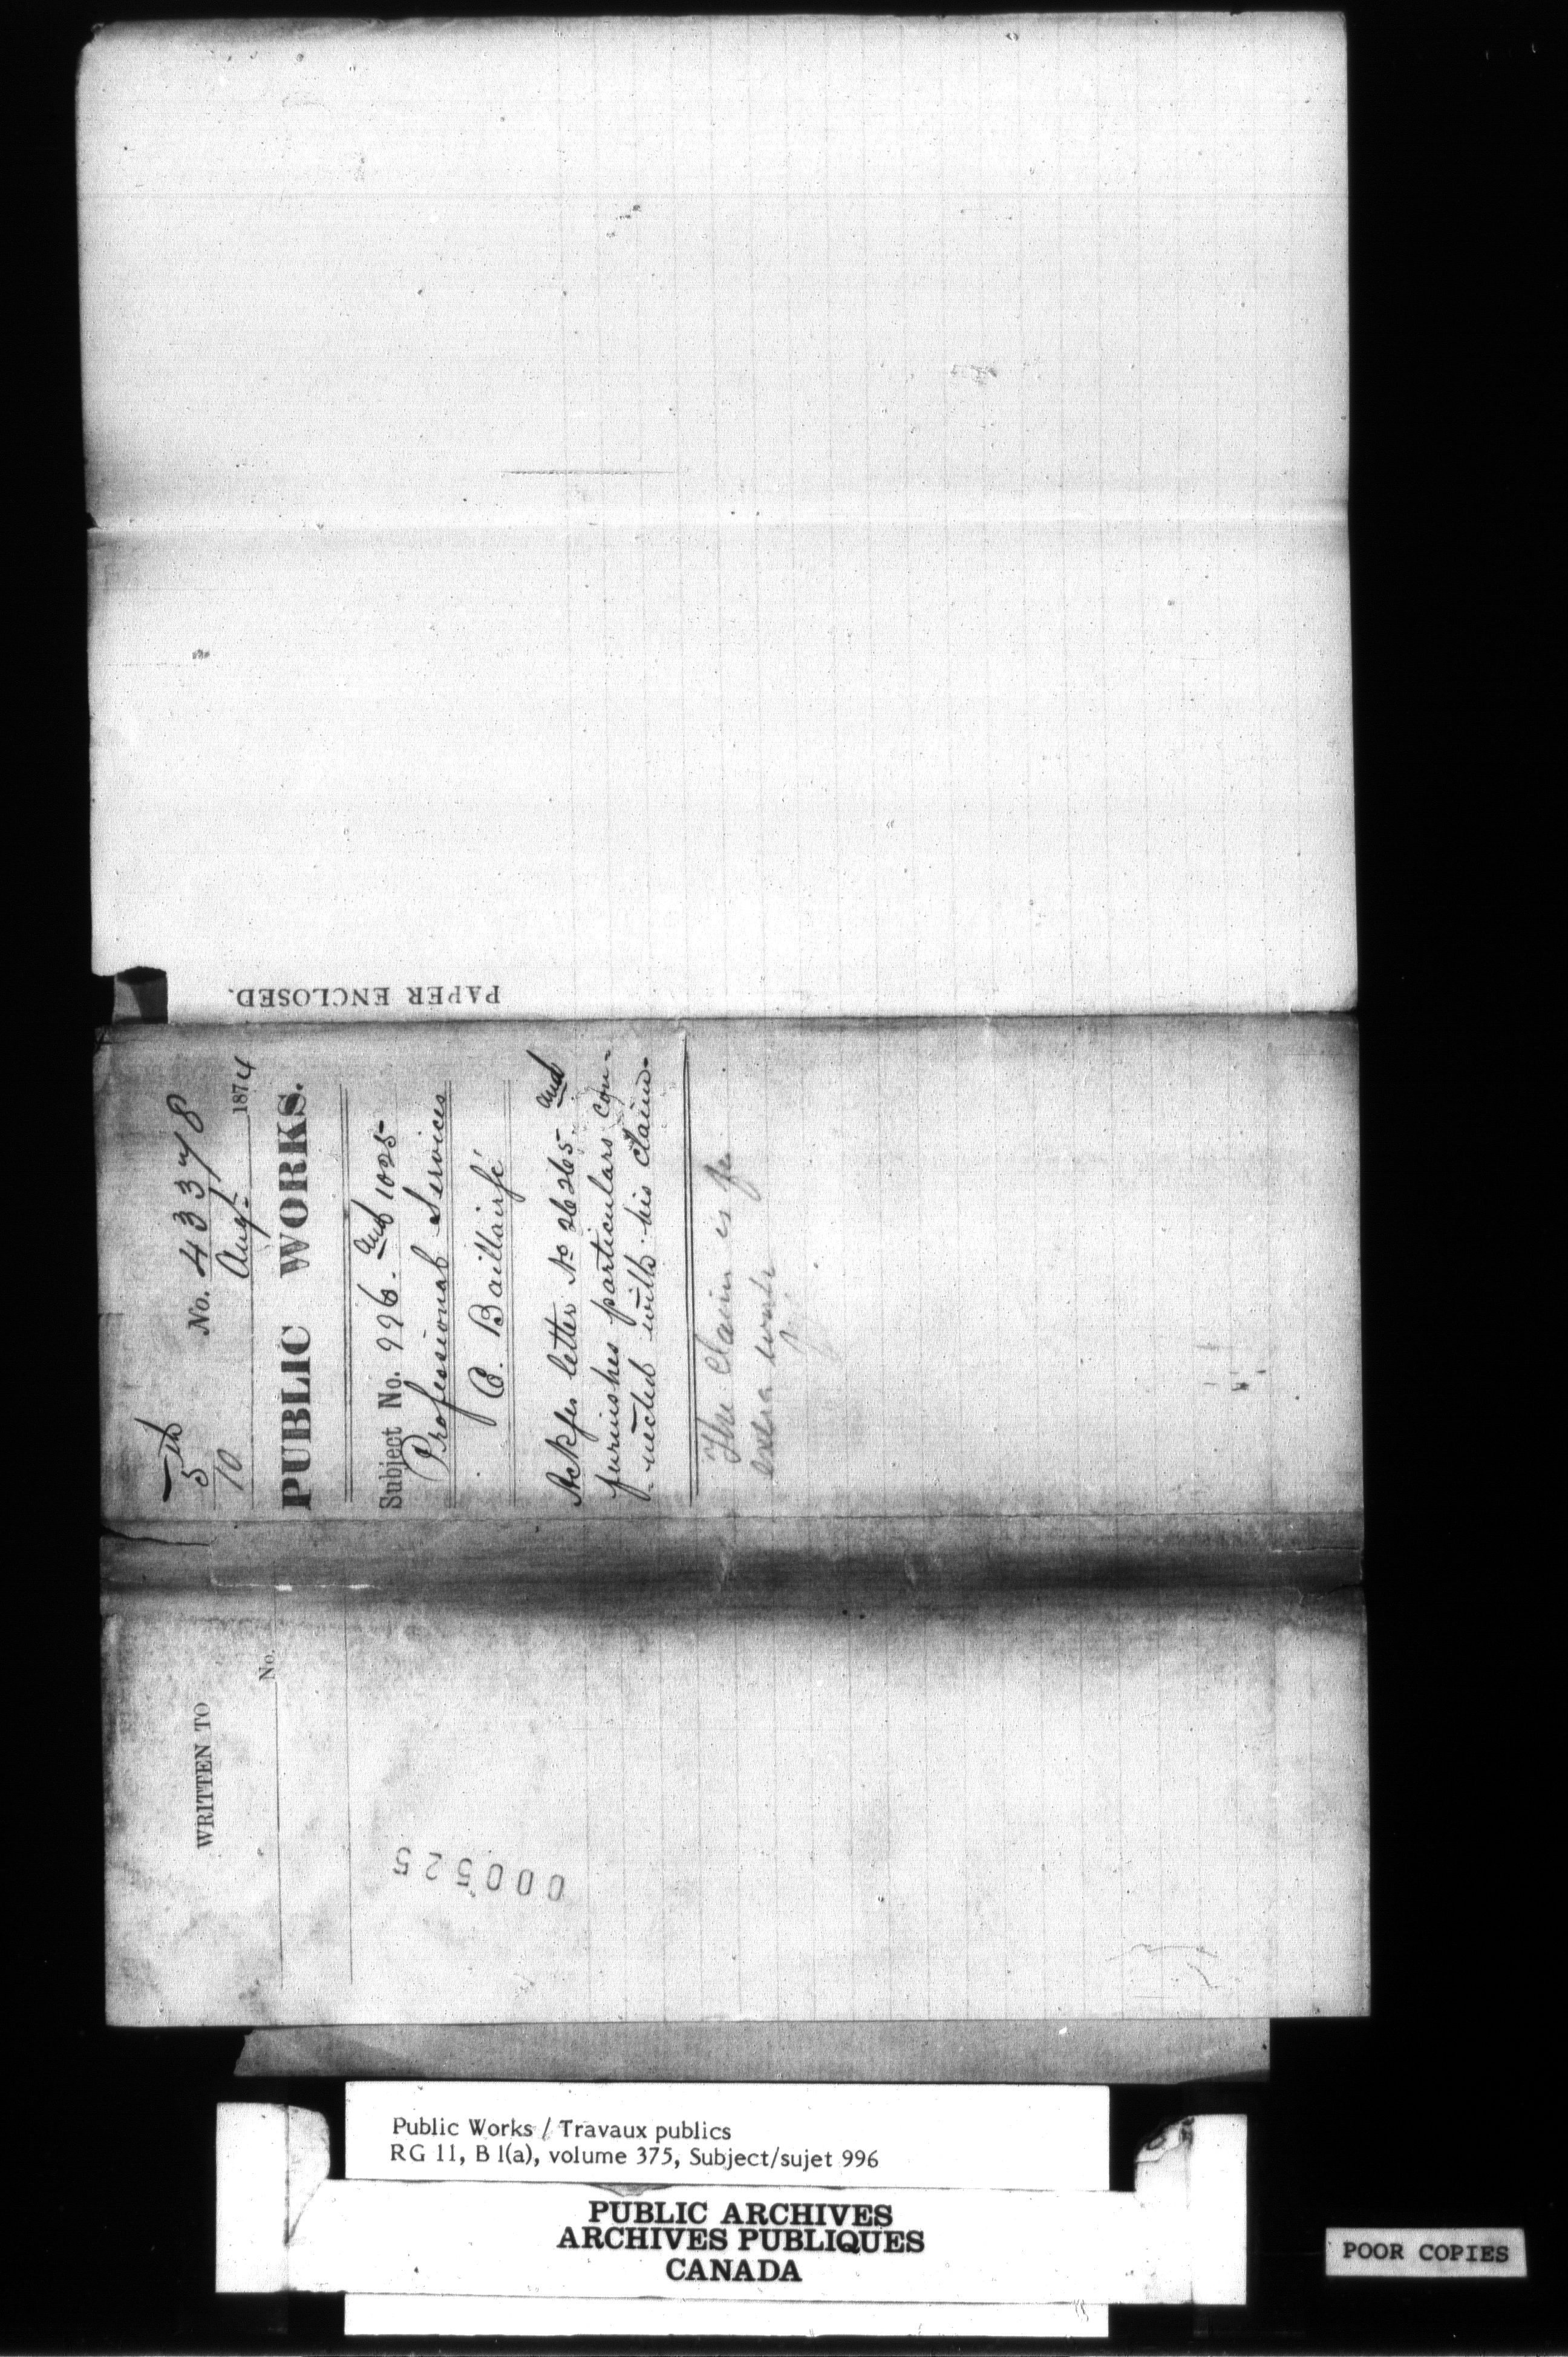 PAPER ENCLOSED.
5th
10
No. 43378
Augt 1874
PUBLIC WORKS.
Subject No. 996. and 1025
Professional Services
C. Baillairgé
Ackges letter No 26265 and
furnishes particulars con-
-nected with his claim.
The claim is for
extra work
WRITTEN TO
No.
000525
Public Works / Travaux publics
RG 11, B 1(a), volume 375, Subject/sujet 996
PUBLIC ARCHIVES
ARCHIVES PUBLIQUES
CANADA
POOR COPIES